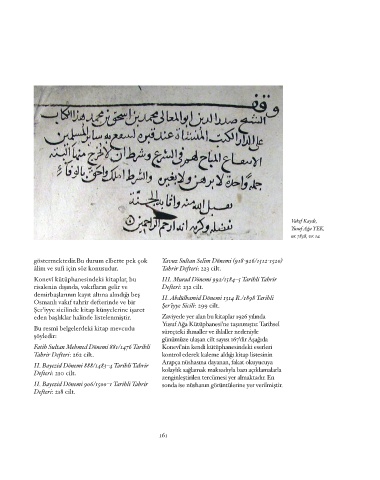 وقف
الشيخ صدر الدين ابو المعالى محمد بن اسحق بن محمد هذا الكتاب
على الدار الكتب المنشاة عند قبره لينتفع به ساير المسلمين
الانتفاع المباح لهم فى الشرع وشرط ان لا يخرج منها البتة
جملة واحدة لا برهن ولا بغيره والشرط املك واحق بالوفاء
تقبل الله منه واثابه الجنة
بفضله وكرمه انه ارحم الراحمين
Vakıf Kaydı,
Yusuf Ağa YEK,
nr. 7838, vr. 1a
göstermektedir.Bu durum elbette pek çok
âlim ve sufi için söz konusudur.
Konevî kütüphanesindeki kitaplar, bu
risalenin dışında, vakıfların gelir ve
demirbaşlarının kayıt altına alındığı beş
Osmanlı vakıf tahrir defterinde ve bir
Şer'iyye sicilinde kitap künyelerine işaret
eden başlıklar halinde listelenmiştir.
Bu resmî belgelerdeki kitap mevcudu
şöyledir:
Fatih Sultan Mehmed Dönemi 881/1476 Tarihli
Tahrir Defteri: 262 cilt.
II. Bayezid Dönemi 888/1483-4 Tarihli Tahrir
Defteri: 210 cilt.
II. Bayezid Dönemi 906/1500-1 Tarihli Tahrir
Defteri: 218 cilt.
Yavuz Sultan Selim Dönemi (918-926/1512-1520)
Tahrir Defteri: 223 cilt.
III. Murad Dönemi 992/1584-5 Tarihli Tahrir
Defteri: 232 cilt.
II. Abdülhamid Dönemi 1314 R./1898 Tarihli
Şer'iyye Sicili: 299 cilt.
Zaviyede yer alan bu kitaplar 1926 yılında
Yusuf Ağa Kütüphanesi'ne taşınmıştır. Tarihsel
süreçteki ilavaler ve ihlaller nedeniyle
günümüze ulaşan cilt sayısı 167'dir Aşağıda
Konevî'nin kendi kütüphanesindeki eserleri
kontrol ederek kaleme aldığı kitap listesinin
Arapça nüshasına dayanan, fakat okuyucuya
kolaylık sağlamak maksadıyla bazı açıklamalarla
zenginleştirilen tercümesi yer almaktadır. En
sonda ise nüshanın görüntülerine yer verilmiştir.
161